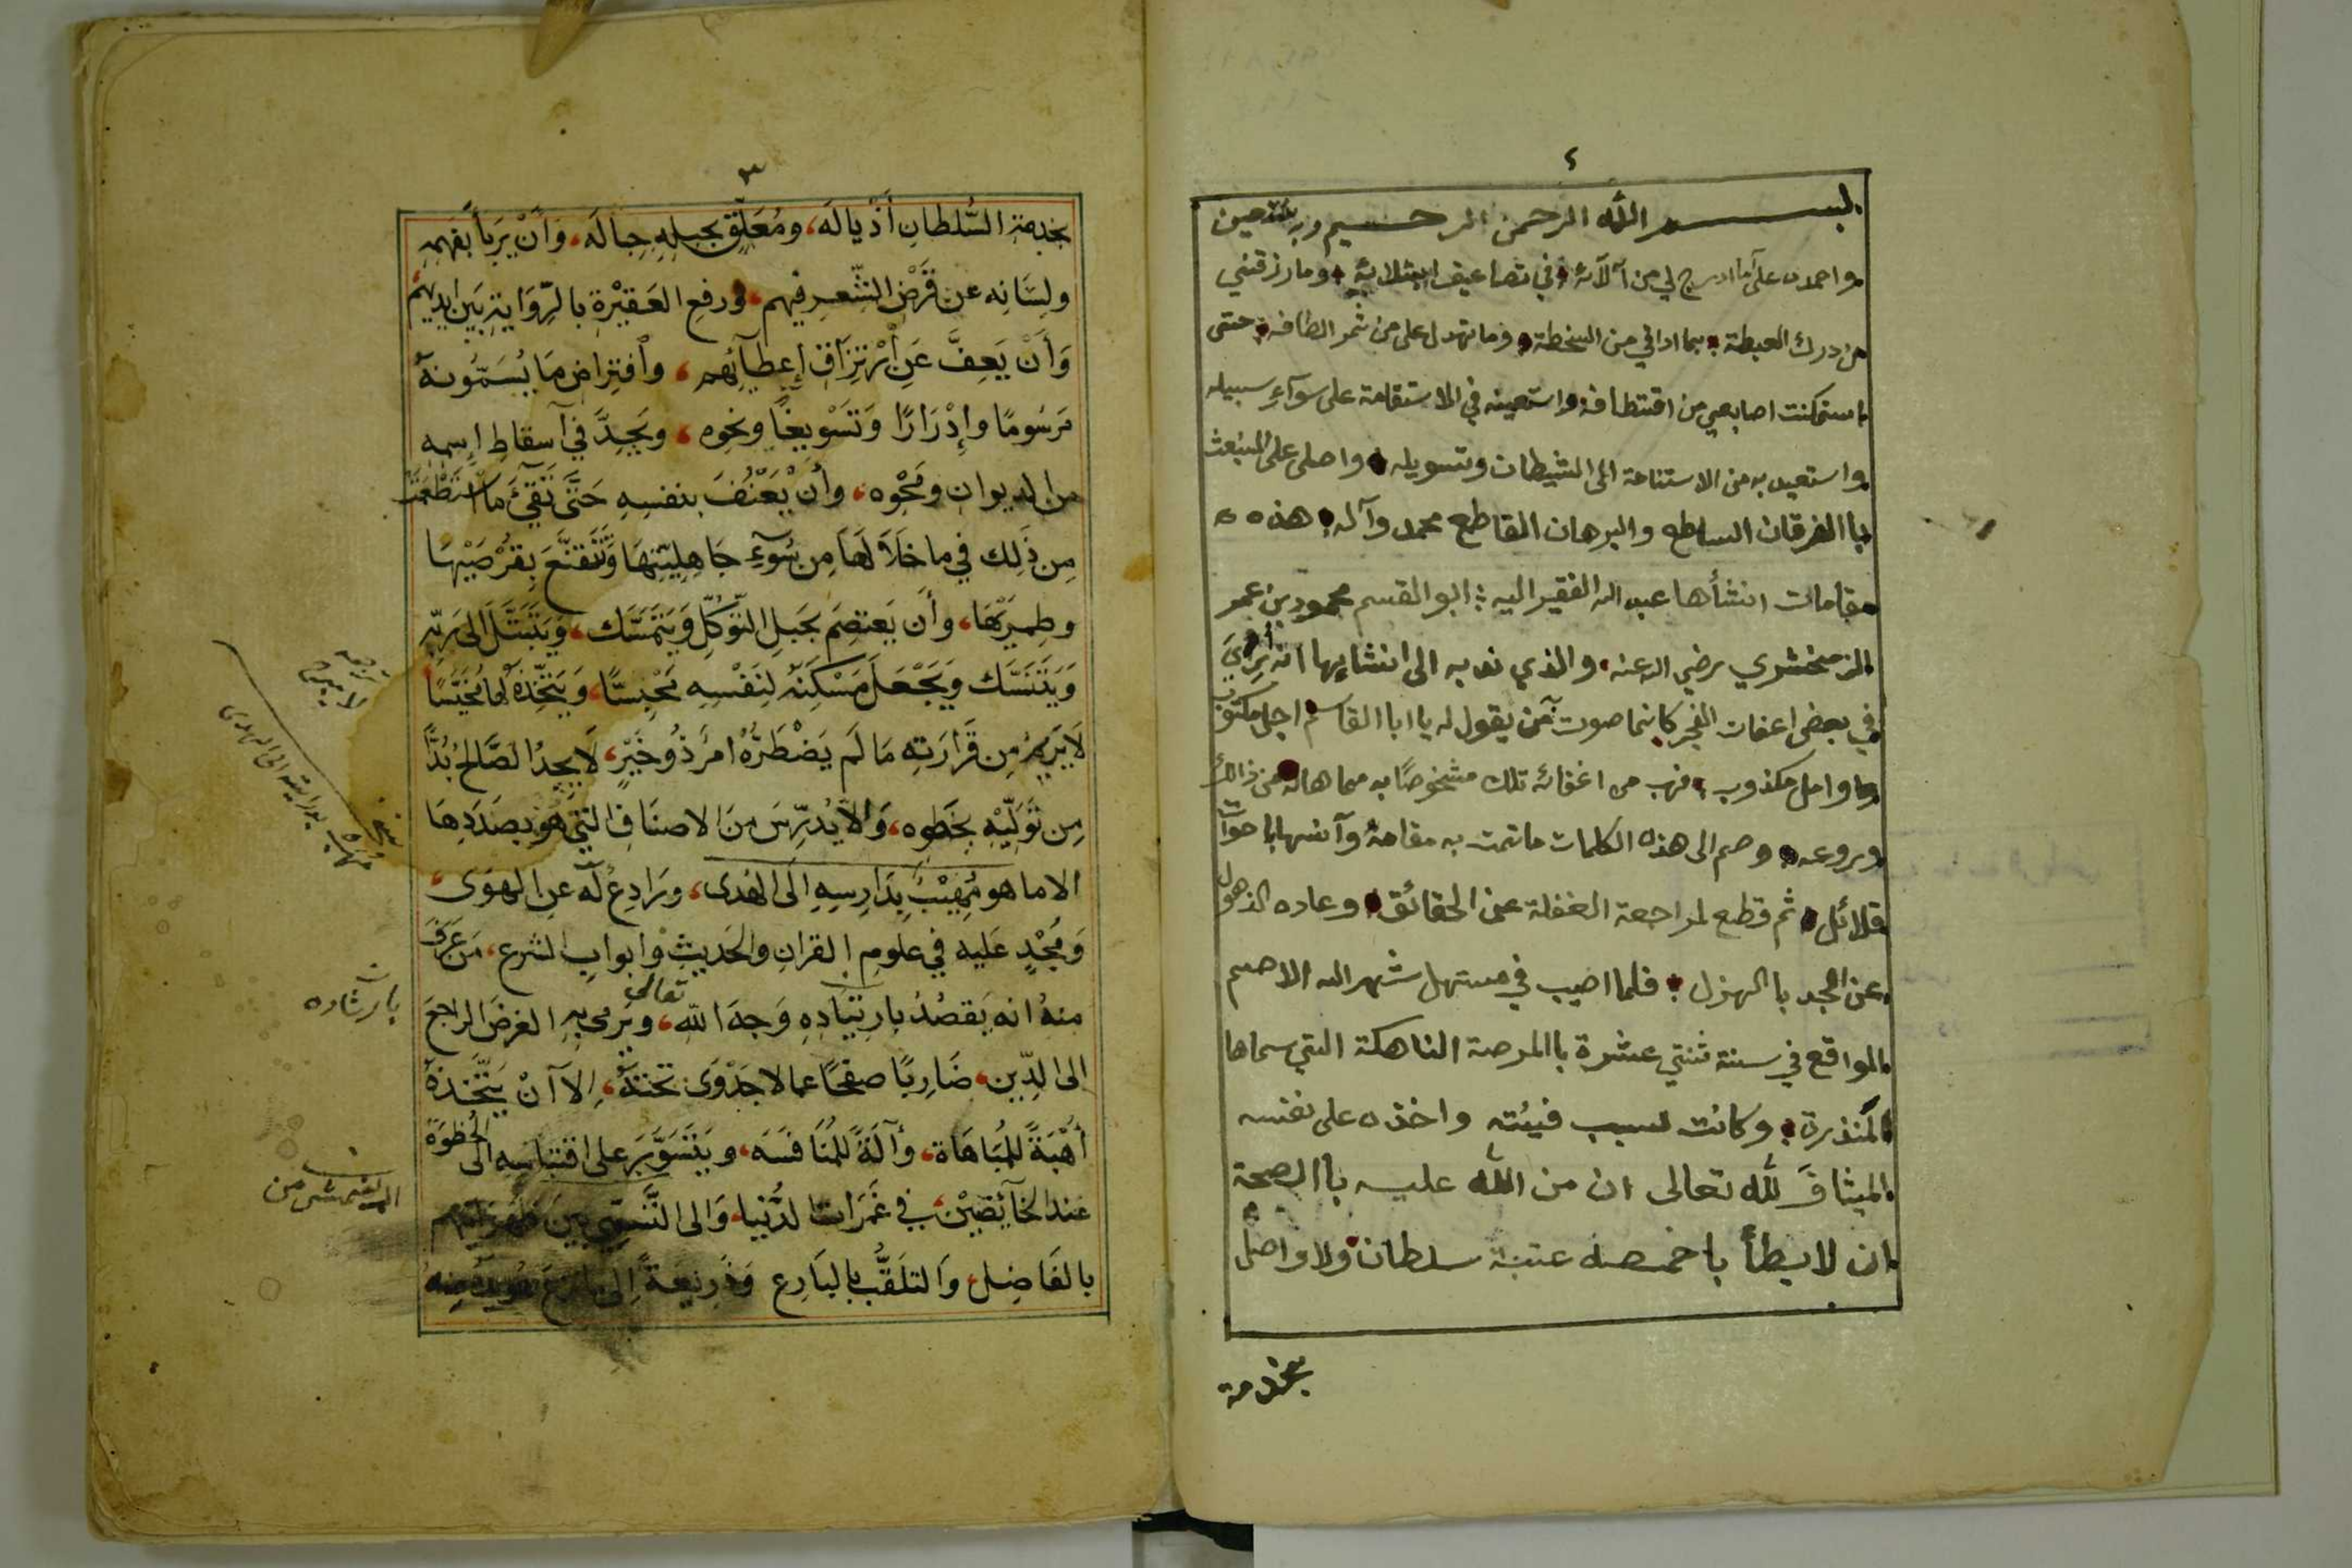 ٤
بسم الله الرحمن الرحيم وبه نستعين
واحمده على ما ادرج لي من آلآئه في تضاعيف ابتلائه وما رزقني
من درك الغبطة بما اذاقي من السخطة وما تهدل على من ثمر الطافه حتى
استمكنت اصابعي من اقتطافه واستعينه في الاستقامة على سوآء سبيله
واستعيد به من الاستنامة الى الشيطان وتسويله واصلى على المبتعث
باالفرقان الساطع والبرهان القاطع محمد وآله هذه
مقامات انشأها عبد الله الفقير اليه ابو القسم محمود بن عمر
الزمخشري رضي الله عنه والذي ندبه الى انشايها انه أُرِيَ
في بعض اغفآت الفجر كانما صوت من يقول له يا ابا القاسم اجل مكتوب
وامل مكذوب فهب من اغفائه تلك مشخوصًا به مما هاله من ذالك
وروعه وضم الى هذه الكلمات ما تمت به مقامة وآنسها باخوات
قلائل ثم قطع لمراجعة الغفلة عن الحقائق وعاده الذهول
عن الجد باالهزل فلما اصيب في مستهل شهر الله الاصم
الواقع في سنة ثنتي عشرة باالمرضة الناهكة التي سماها
المنذرة وكانت لسبب فيئته واخذه على نفسه
الميثاق لله تعالى ان من الله عليه باالصحة
ان لا يطأ باخمصه عتبة سلطان ولا واصل
بخدمة
٣
بخدمة السُّلطانِ أَذْيالَه، ومُعَلِّق بحبله حِبالَه، وَأَنْ يَرْبَأَ بفَهمِه
ولِسَانِه عن قَرْضِ الشّعرِ فيهم، ورفعِ العَقِيْرةِ بالرِّوَايةِ بَين ايديهم
وَأَنْ يَعِفَّ عَنِ ارْتِزَاقِ إِعطِيآئِهم، وافتراض مَا يُسَمُّونهُ
مَرسُومًا وإِدْرَارًا وَتَسْوِيغًا ونحوه، ويَجِدَّ في آسقاطِ اسمِه
من الديوان ومَحْوِه، وأن يَعْنُفَ بنفسِه حَتَّى تَقِيْءَ ما استَطْعَمَتْ
مِن ذَلِك في ما خَلَا لَهَا مِن سُوٓءِ جَاهِلِيَّتِهَا وَتَتَقنَّعَ بقُرْصَيْهَا
وطِمِرَيْهَا، وأَن يَعتَصِمَ بحَبلِ التَّوَكّلِ وَيَتَمَسَّك، وَيَتَبَتَّلَ الى رَبِّه
وَيَتَنَسَّك وَيَجْعَلَ مَسْكَنَهُ لِنَفْسِهِ مَحْبِسًا، وَيَتَّخِذَهُ لها مُخَيَّسًا
لا يَرِيمُ مِن قَرَارَتِه مَا لَم يَضْطَرَّهُ امرٌ ذُو خَيْرٍ، لَا يَجِدُ الصَّالحُ بُدًّا
مِن تَوَلِّيْهِ بخَطوِه، وَالّا يُدَرِّسَ مِنَ الاصنَافِ الَّتي هو بصَدَدِهَا
الا ما هو مُهِيبٌ بِدَارِسِهِ الى الهُدى، ورَادِعٌ لَه عن الهَوَى،
وَمُجْدٍ عَليه في علومِ القرانِ والحَدِيثِ وابوابِ الشرع، مَن عَرَفَ
منهُ انه يَقصُدُ بارتِيَادِهِ وَجهَ اللّه تعالى، ويَرمي بِه الغرضَ الراجعَ
الى الدِّين، ضَارِبًا صفحًا عما لا جَدْوَى تحتَهُ، الآ آنْ يَتَّخذهُ
أُهْبَةً للمُبَاهَاة، وآلَةً للمُنَافَسَه، ويَتَسَوَّرَ على اقتباسِه الى الحُظوَة
عند الخآئِضِيْنَ في غَمَراتِ الدُّنيا، وَالى التَّسَمّي بين ظهرانيهم
بالفَاضِل، وَالتلَقُّبِ بالبَارِع وَذَرِيعَةً الى
لا يبرح
بدراسته الى الهدى
نسخه
بارشاده